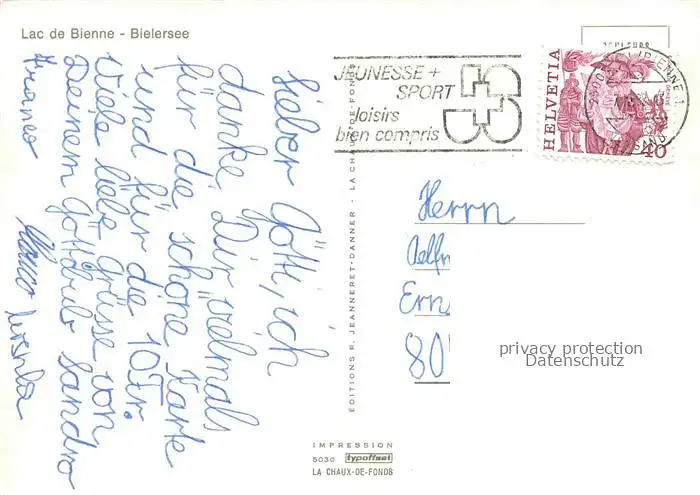 Lac de Bienne - Bielersee
JEUNESSE +
SPORT
loisirs
bien compris
HELVETIA
40
lieber Götti, ich
danke Dir vielmals
für die schöne Karte
und für die 10Fr.
Viele liebe Grüsse von
Deinem Göttibub Sandro
Franco
Ursula
EDITIONS R. JEANNERET-DANNER - LA CHAUX-DE-FONDS
Herrn
Ern
80
privacy protection
Datenschutz
IMPRESSION
5030 typoffset
LA CHAUX-DE-FONDS